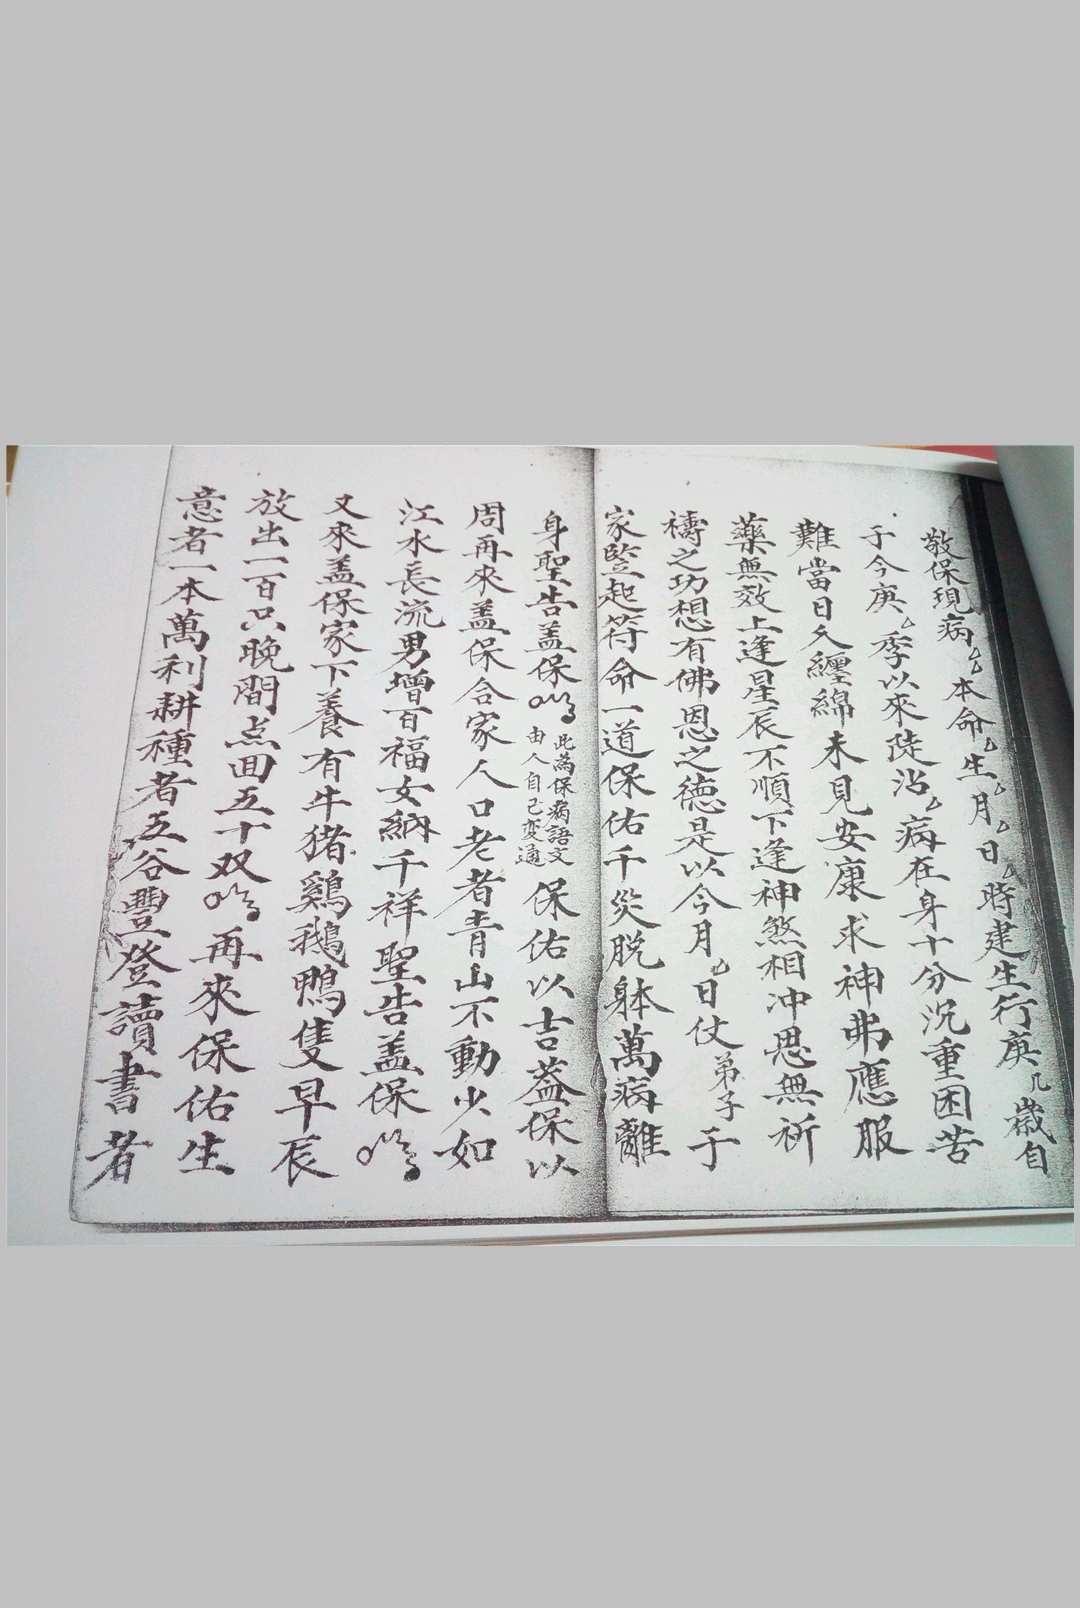 敬保現病厶厶本命厶生厶月厶日厶時建生行庚几歲自
于今庚厶季以來陡沾厶病在身十分沉重困苦
難當日久纏綿未見安康求神弗應服
藥無效上逢星辰不順下逢神煞相冲思無祈
禱之功想有佛恩之德是以今月厶日仗弟子于
家竪起符命一道保佑千災脱躰萬病離
身聖告盖保 此為保病語文由人自己変通 保佑以吉蓋保以
周再來盖保合家人口老者青山不動少如
江水長流男增百福女納千祥聖告盖保
又來盖保家下養有牛猪鷄鵝鴨隻早辰
放出一百只晚間点回五十双 再來保佑生
意者一本萬利耕種者五谷豐登讀書者